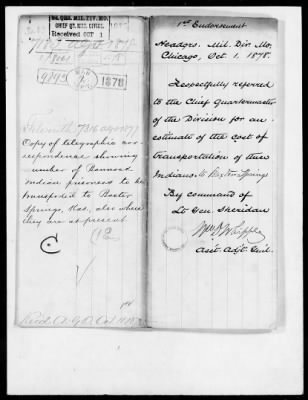 HD. QRS. MIL. DIV. MO.
CHIEF QR. MR. CHICAGO.
Received OCT 1
1878
File with 7316 ago 1877
Copy of telegraphic cor-
respondence showing
number of Bannock
Indian prisoners to be
transferred to Baxter
Springs, Kas., also where
they are at present.
Recd. A.G.O. Oct
1st Endorsement
Headqrs. Mil. Div. Mo.
Chicago, Oct. 1. 1878.
Respectfully referred
to the Chief Quartermaster
of the Division for an
estimate of the cost of
transportation of these
Indians to Baxter Springs
By command of
Lt. Gen. Sheridan
Wm D Whipple
Asst. Adjt. Genl.